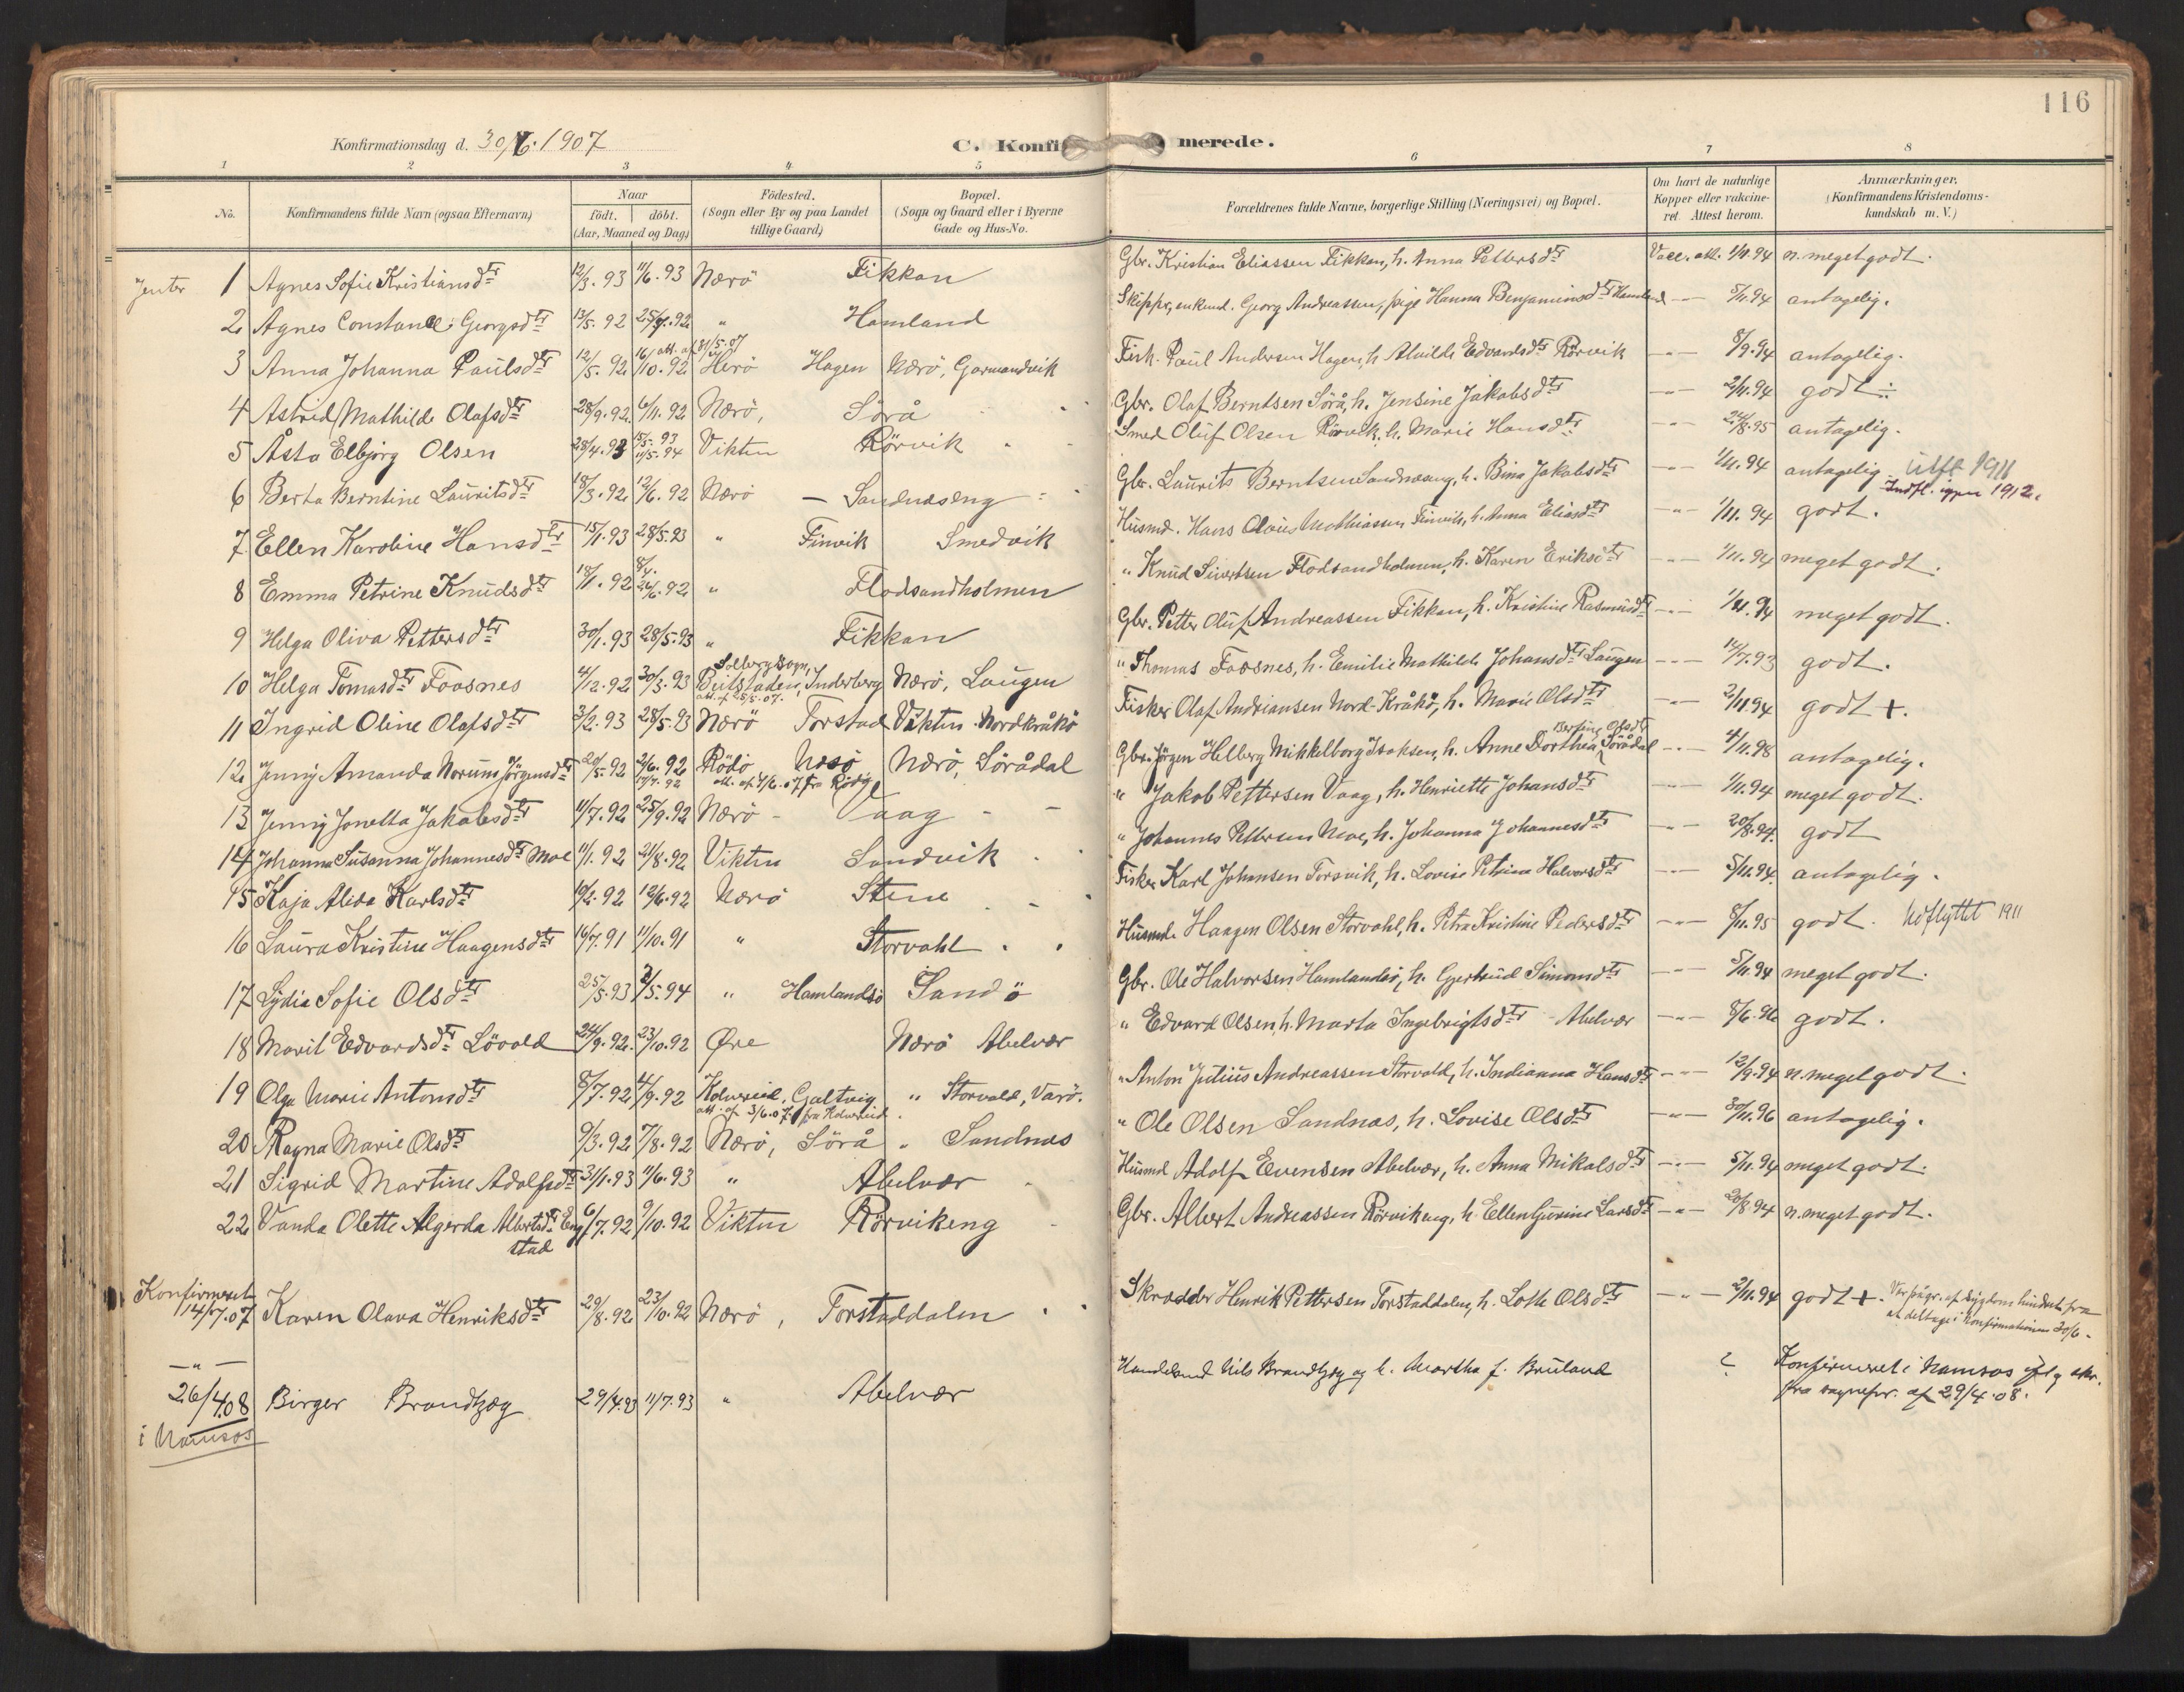 116
Konfirmationsdag d. 30/6. 1907
C. Konfi merede.
1 2 3 4 5 6 7 8
No.
Konfirmandens fulde Navn (ogsaa Efternavn)
Naar
födt. döbt.
(Aar, Maaned og Dag)
Födested.
(Sogn eller By og paa Landet
tillige Gaard)
Bopæl.
(Sogn og Gaard eller i Byerne
Gade og Hus-No.
Forældrenes fulde Navne, borgerlige Stilling (Næringsvei) og Bopæl.
Om havt de naturlige
Kopper eller vakcine-
ret. Attest herom.
Anmærkninger.
(Konfirmandens Kristendoms-
kundskab m. V.)
Jenter 1 Agnes Sofie Kristiansdtr 12/3. 93 11/6. 93 Nærö Fikkan Gbr. Kristian Eliassen Fikkan, h. Anna Pettersdtr Vacc. att. 1/11.94 n. meget godt.
2 Agnes Constance Georgsdtr 13/5. 92 25/9. 92 " Hamland Skipper, enkemd. Georg Andreassen, pige Hanna Benjaminsdtr Hamland -"- 5/11.94 antagelig.
3 Anna Johanna Paulsdtr 12/5. 92 16/10. 92 att. af 31/5.07 Herö Hagen Nærö, Garmandvik Fisk. Paul Andersen Hagen, h. Alvilde Edvardsdtr Rörvik -"- 8/9.94 antagelig.
4 Astrid Mathilde Olafsdtr 28/9. 92 6/11. 92 Nærö, Sörå Gbr. Olaf Berntsen Sörå, h. Jensine Jakobsdtr -"- 2/11.94 godt ÷
5 Åsta Elbjørg Olsen 28/4. 93 15/5. 93 11/5. 94 Vikten Rörvik Smed Oluf Olsen Rörvik, h. Marie Hansdtr -"- 24/8.95 antagelig.
6 Berta Berntine Lauritsdtr 18/3. 92 12/6. 92 Nærö - Sandnæseng Gbr. Laurits Berntsen Sandnæseng, h. Bina Jakobsdtr -"- 1/11.94 antagelig. Utfl 1911
Indfl. igjen 1912.
7 Ellen Karoline Hansdtr 15/1. 93 28/5. 93 " Finvik Smedvik Husmd. Hans Olaus Mathiassen Finvik, h. Anna Eliasdtr -"- 1/11. 94 godt.
8 Emma Petrine Knudsdtr 18/1. 92 8/4. 24/6. 92 " Flodsandholmen " Knud Sivertsen Flodsandholmen, h. Karen Eriksdtr -"- 1/11.94 meget godt.
9 Helga Oliva Pettersdtr 30/1. 93 28/5. 93 " Fikkan Gbr. Petter Oluf Andreassen Fikkan, h. Kristine Rasmusdtr -"- 1/11.94 meget godt.
10 Helga Tomasdtr Foosnes 4/12. 92 30/3. 93 Solberg sogn, Beitstaden, Inderberg att. af 25/5.07. Nærö, Laugen " Thomas Foosnes, h. Emilie Mathilde Johansdtr Laugen -"- 14/7.93 godt.
11 Ingrid Oline Olafsdtr 3/2. 93 28/5. 93 Nærö Torstad Vikten Nordkråkö Fisker Olaf Andriansen Nord-Kråkö, h. Marie Olsdtr -"- 2/11.94 godt +.
12 Jenny Amanda Norum Jörgensdtr 20/5. 92 2/6. 92 17/7. 92 Rödö Næsö att. af 4/6.07 fra Rödö Nærö, Sörådal Gbr. Jörgen Helberg Mikkelborg Isaksen, h. Anne Dorthea Bersine Olsdtr Sörådal -"- 4/11.98 antagelig.
13 Jenny Jonetta Jakobsdtr 11/7. 92 25/9. 92 Nærö - Vaag " Jakob Pettersen Vaag, h. Henriette Johansdtr -"- 1/11.94 meget godt.
14 Johanna Susanna Johannesdtr Moe 11/1. 92 21/8. 92 Vikten Sandvik " Johannes Pettersen Moe, h. Johanna Johannesdtr -"- 20/8.94. godt
15 Kaja Alida Karlsdtr 10/2. 92 12/6. 92 Nærö Stene Fisker Karl Johansen Torsvik, h. Lovise Petrine Halvorsdtr -"- 5/11.94. antagelig.
16 Laura Kristine Haagensdtr 16/7. 91 11/10. 91 " Storvahl Husmd. Haagen Olsen Storvahl, h. Petra Kristine Pedersdtr -"- 8/11.95 godt. Udflyttet 1911
17 Lydia Sofie Olsdtr 25/5. 93 3/5. 94 " Hamlandsö Sandö Gbr. Ole Halvorsen Hamlandsö, h. Gjertrud Simonsdtr -"- 5/11.94 meget godt.
18 Marit Edvardsdtr Lövold 24/9. 92. 23/10. 92 Øre Nærö Abelvær " Edvard Olsen, h. Marta Ingebrigtsdtr Abelvær -"- 8/6.96 godt.
19 Olga Marie Antonsdtr 8/7. 92 4/9. 92 Kolvereid, Galtvig att. af 3/6.07 fra Kolvereid " Storvold, Varö. " Anton Julius Andreassen Storvold, h. Indianna Hansdtr -"- 12/9.94 n. meget godt.
20 Ragna Marie Olsdtr 9/3. 92 7/8. 92 Nærö, Sörå " Sandnæs " Ole Olsen Sandnæs, h. Lovise Olsdtr -"- 30/11.96 antagelig.
21 Sigrid Martine Adolfsdtr 31/1. 93 11/6. 93 " Abelvær Husmd Adolf Evensen Abelvær, h. Anna Mikalsdtr -"- 5/11.94 meget godt.
22 Vanda Olette Algerda Albertsdtr Eng 6/7. 92 9/10. 92 Vikten Rörvikeng Gbr. Albert Andreassen Rörvikeng, h. Ellen Gurine Larsdtr -"- 20/8.94 n. meget godt.
stad
Konfirmeret
14/7.07 Karen Olava Henriksdtr 29/8. 92 23/10. 92 Nærö, Torstaddalen Skrædder Henrik Pettersen Torstaddalen, h. Lotte Olsdtr -"- 2/11.94 godt +. Var pågr. af sygdom hindret fra
at deltage i konfirmationen 30/6.
-"-
26/4.08 Birger Brandtzæg 29/4.93 11/7.93 " Abelvær Handelsmd Nils Brandtzæg og h. Martha f. Bruland ? Konfirmeret i Namsos ifølg skr.
fra sognepr. af 29/4.08.
i Namsos